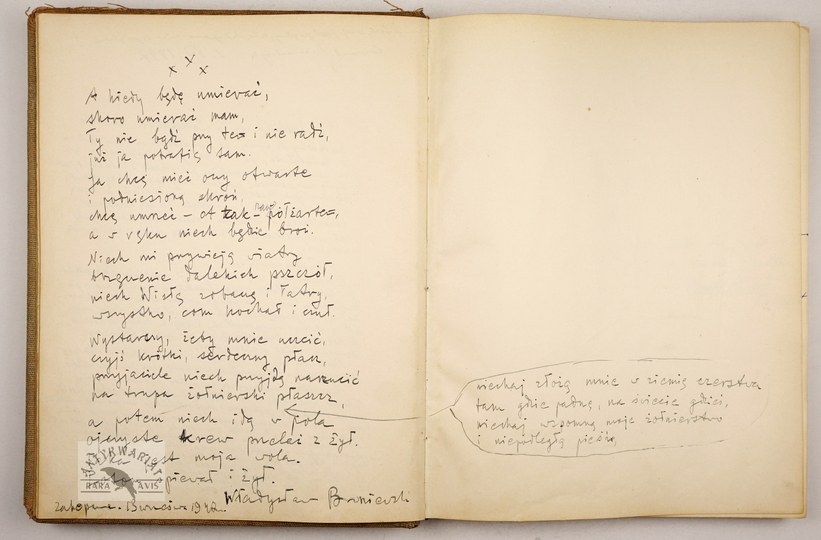 x x x
A kiedy będę umierać,
skoro umierać mam,
Ty nie bądź przy tem i nie radź,
już ja potrafię sam.
Ja chcę mieć oczy otwarte
i podniesioną skroń,
chcę umrzeć – ot tak – na półżartem,
a w ręku niech będzie broń.
Niech mi przywieją wiatry
brzęczenie dalekich pszczół,
niech Wisłę zobaczę i Tatry,
wszystko, com kochał i czuł.
Wystarczy, żeby mnie uczcić,
czyjś krótki, serdeczny płacz,
przyjaciele niech przyjdą narzucić
na trupa żołnierski płaszcz,
a potem niech idą w pola
krew przelać z żył.
moja wola.
śpiewał i żył.
Władysław Broniewski
Zakopane. 13 1947.
niechaj złożą mnie w ziemię czerstwą
tam gdzie padnę, na świecie gdzieś,
niechaj wspomną moje żołnierstwo
i niepodległą pieśń
ANTYKWARIAT
RARA AVIS